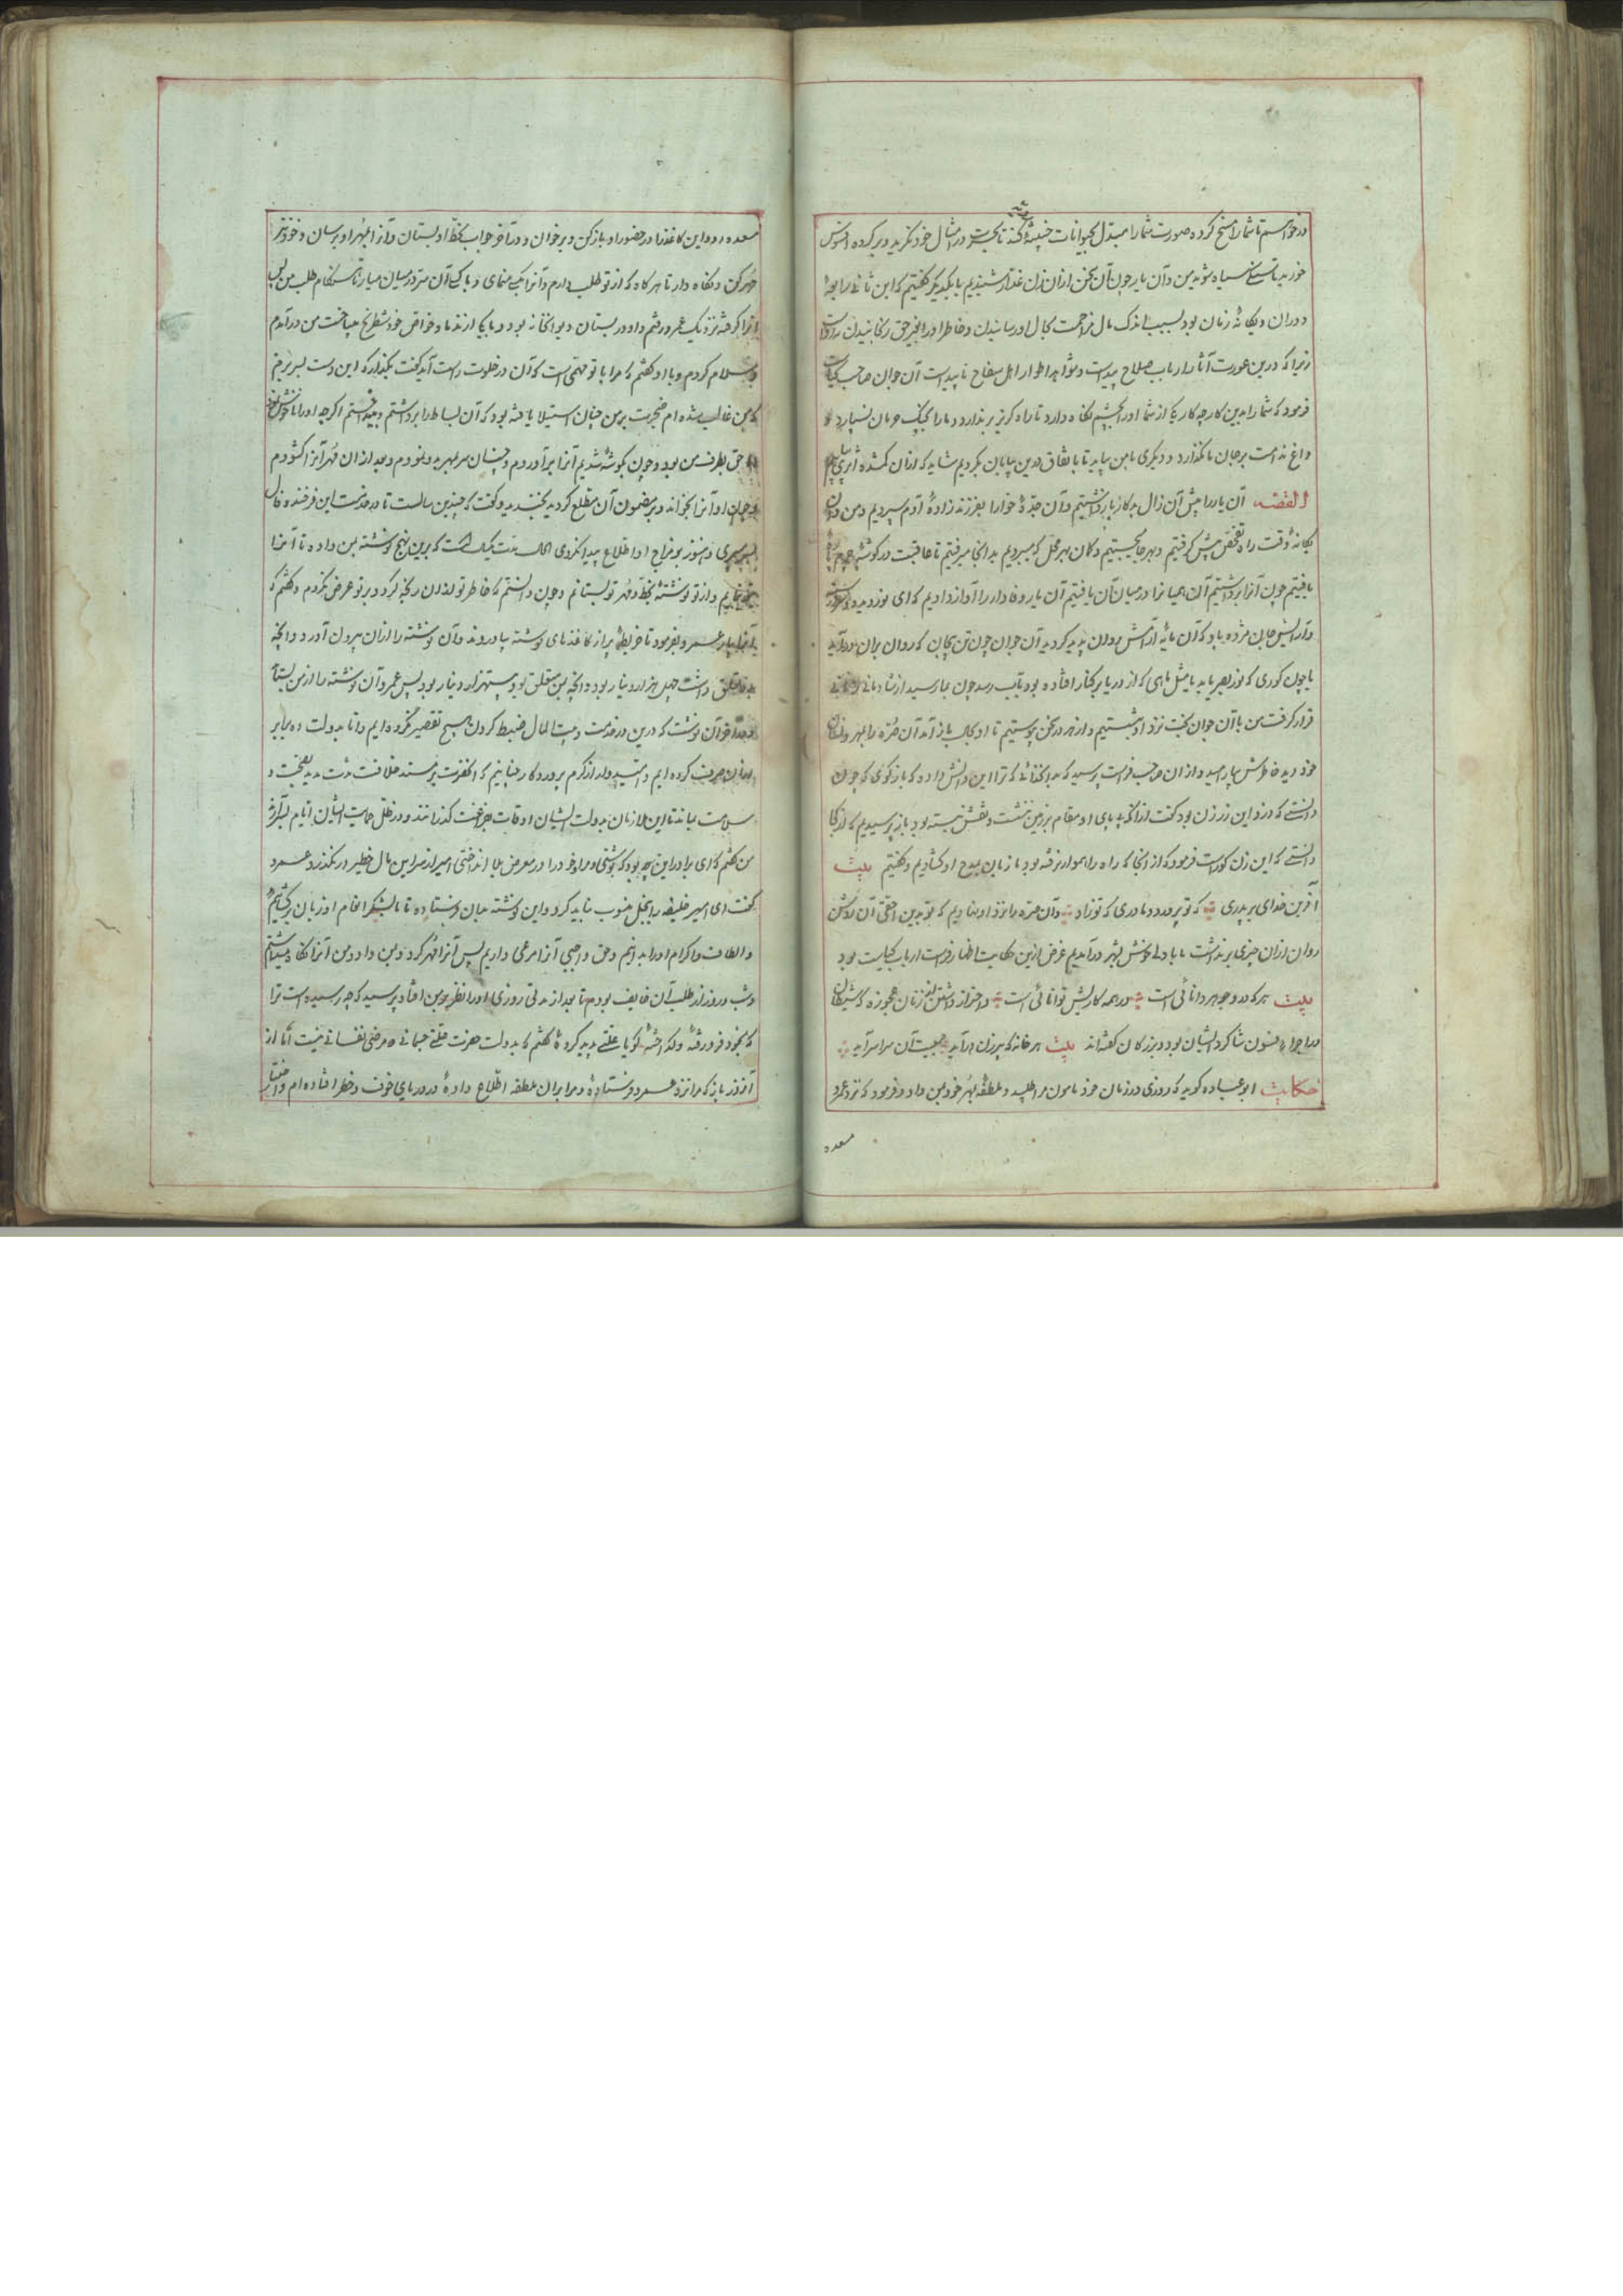 درخواستم تا شما را مسخ کرده صورت شما را مبدل بحیوانات خبیثه کند تا بحسرت در امثال خود نگرید و بر کرده افسوس
خورید تا سیاه شوید من و آن یار چون آن سخن از ان زن غدار شنیدیم با یکدیگر گفتیم که این ثانی رابعه
دوران و یگانهٔ زنان بود بسبب اندک مال زحمت بحال او رسانیدن و خاطر او را بغیر حق رنجانیدن
زیرا که درین عورت آثار ارباب صلاح پیداست و شواهد اطوار اهل سفاح ناپیداست آن جوان صاحب
فرمود که شما را بدین کار چه کار یکی از شما او را بچشم نگاه دارد تا راه گریز بر ندارد و ما را بچنگ حرمان نسپارد و
داغ ندامت بر جان ما نگذارد و دیگری با من بیاید تا باتفاق درین بیابان بگردیم شاید که از ان گمشده اثری یابیم
القصه آن یار را پیش آن زال بدکار باز داشتیم و آن جدهٔ خوار را بفرزند زادهٔ آدم سپردیم و من و آن
یگانهٔ وقت راه تفحص پیش گرفتیم و بهر جا میجستیم و گمان بهر محل که میبردیم بدانجا میرفتیم تا عاقبت در گوشهٔ
یافتیم چون آنرا برداشتیم آن همیانرا در میان آن یافتیم آن یار وفادار را آواز دادیم که ای نور دیده
و آرایش جان مژده باد که آن مایهٔ آرامش روان پدید گردید آن جوان چون تن بیجان که روان بران
یا چون کوری که نور بصر یابد یا مثل ماهی که از دریا بر کنار افتاده بود بآب رسد چون بما رسید از شادمانی
قرار گرفت من با آن جوان بخت نزد او نشستیم و از هر در سخن پیوستیم تا او بحال باز آمد آن صره را بمهر
خود دید خاطرش بیارامید و از ان صاحب فراست پرسید که بدان خدائی که ترا این دانش داده که باز گوئی که چون
دانستی که دزد این زر زن بود گفت از آنکه پای او مقام بر زمین نشست و نقش بسته بود باز پرسیدیم که از کجا
دانستی که این زن کور است فرمود که از آنجا که راه را هموار نرفته بود ما زبان بمدح او گشادیم و گفتیم بیت
آفرین خدای بر پدری که تو پرورد و مادری که تو زاد و آن صره را نزد او نهادیم که تو بدین احقی آن روشن
روان از ان چیزی بر نداشت ما با دلی خوش بشهر درآمدیم غرض ازین حکایت اظهار فراست ارباب کیاست بود
بیت هر که درو جوهر دانائی است در همه کاریش توانائی است و احتراز داشتن از زنان عجوزه که شیطان
در اجراء فسون شاگرد ایشان بود و بزرگان گفته‌اند بیت هر خانه که پیرزن درآید جمعیت آن سراسر آید
حکایت ابو عباده گوید که روزی در زمان خود مامون مرا طلبید و ملطفهٔ بمهر خود بمن داد و فرمود که نزد عمرو
مسعده
مسعده رو و این کاغذ را در حضور او باز کن و بر خوان و در آخر جواب بخط او بستان و آنرا بمهر او برسان و خود نیز
مهر کن و نگاه دار تا هر گاه که از تو طلب دارم و آنرا بکسی منمای و با کسی آن سر در میان میار تا هنگام طلب من پس
آنرا گرفته نزدیک عمرو رفتم و او در بستان دیوانخانه بود و با یکی از ندما و خواص خود شطرنج میباخت من درآمدم
و سلام کردم و با او گفتم که مرا با تو مهمی است که آن در خلوت راست آید گفت بگذار که این دست بسر بریم
که من غالب شده‌ام ضجرت بر من چنان استیلا یافته بود که آن بساط را برداشتم و بینداختم اگرچه او را ناخوش
اما حق بطرف من بود و چون بگوشه شدیم آنرا برآوردم و چنان سربمهر بدو نمودم و بعد از ان مهر آنرا گشودم
و چون او آنرا بخواند و بر مضمون آن مطلع گردید بخندید و گفت که چندین سالست تا در خدمت این فرخنده فال
بسر میبری و هنوز بر مزاج او اطلاع پیدا نکردی الحال مدت یک است که برین نهج نوشته بمن داده تا آنرا
بتو نمایم و از تو نوشتهٔ بخط و مهر تو بستانم و چون دانستم که خاطر تو از ان رنجه گردد بر تو عرض نکردم و گفتم که
آنرا بیار عمرو بفرمود تا خریطهٔ پر از کاغذهای نوشته بیاوردند و آن نوشته را از ان بیرون آورد و آنچه
بدو تعلق داشت چهل هزار دینار بود و آنچه بمن متعلق بود بیست هزار دینار بود پس عمرو آن نوشته را از من بستد
و در آخر آن نوشت که درین در خدمت و بیت المال ضبط کردن هیچ تقصیر نکرده‌ایم و اما بدولت ده برابر
ازان صرف کرده‌ایم و امیدوار از کرم پروردگار چنانیم که آنحضرت بر مسند خلافت مدت مدید بصحت و
سلامت بماند تا این ملازمان بدولت ایشان اوقات بفراغت گذرانند و در ظل حمایت ایشان ایام بسر آرند
من گفتم که ای برادر این چه بود که نوشتی و مرا و خود را در معرض بلا انداختی امیر از سر این مال خطیر در نگذرد عمرو
گفت ای امیر خلیفه را ببخل منسوب نباید کرد و این نوشته بدان فرستاده تا ما بشکر انعام او زبان برگشائیم
و الطاف و اکرام او را بدانیم و حق واجبی آنرا مرعی داریم پس آنرا مهر کرد و بمن داد و من آنرا نگاه میداشتم
و شب و روز از طلب آن خایف بودم تا بعد از مدتی روزی او را نظر بر من افتاد پرسید که چه رسیده است ترا
که بخود فرو رفتهٔ و گداختهٔ گویا علتی پدید کردهٔ گفتم که بدولت حضرت علتی جسمانی و مرضی نفسانی نیست اما از
آنروز باز که مرا نزد عمرو فرستادهٔ و مرا بران ملطفه اطلاع دادهٔ در دریای خوف و خطر افتاده‌ام و